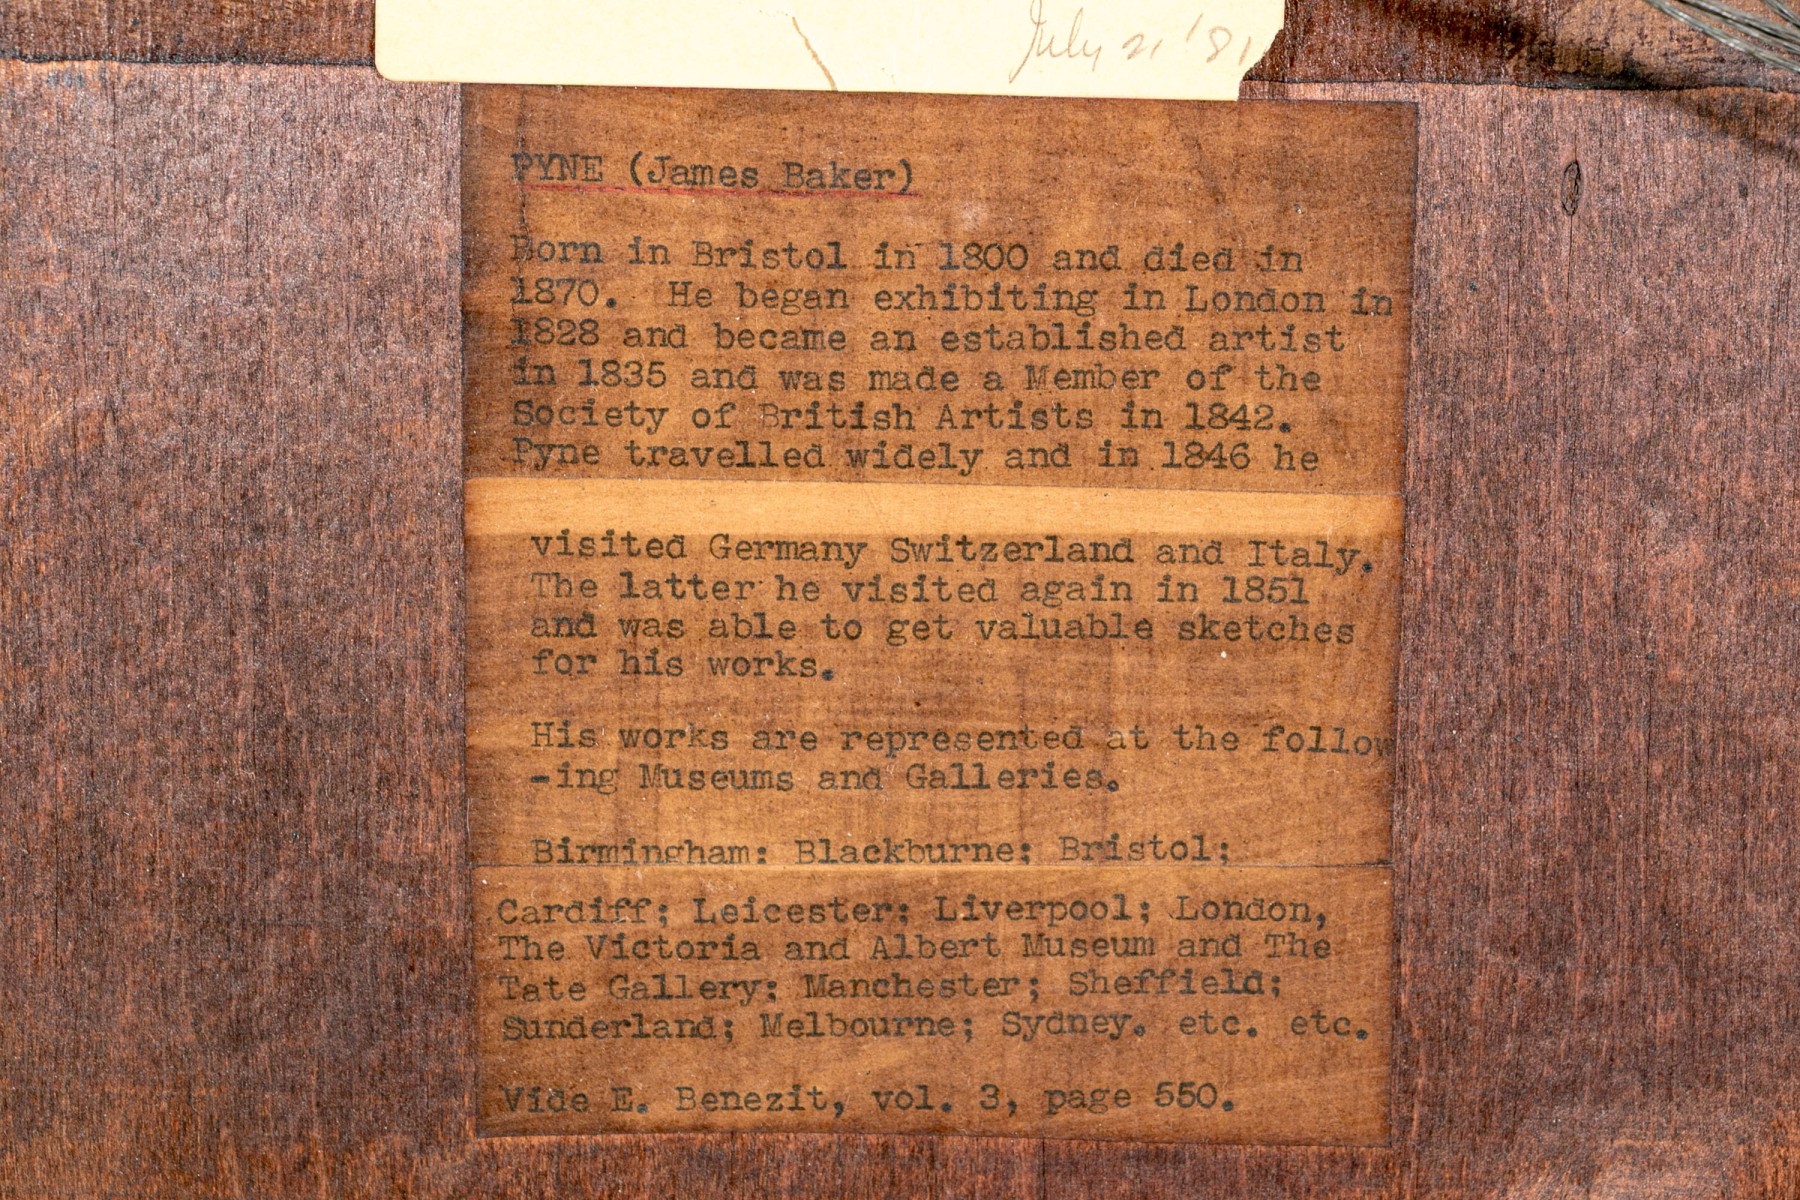 July 21 '81
PYNE (James Baker)
Born in Bristol in 1800 and died in
1870. He began exhibiting in London in
1828 and became an established artist
in 1835 and was made a Member of the
Society of British Artists in 1842.
Pyne travelled widely and in 1846 he
visited Germany Switzerland and Italy.
The latter he visited again in 1851
and was able to get valuable sketches
for his works.
His works are represented at the follow
-ing Museums and Galleries.
Birmingham: Blackburne: Bristol;
Cardiff; Leicester: Liverpool; London,
The Victoria and Albert Museum and The
Tate Gallery: Manchester; Sheffield;
Sunderland; Melbourne; Sydney. etc. etc.
Vide E. Benezit, vol. 3, page 550.